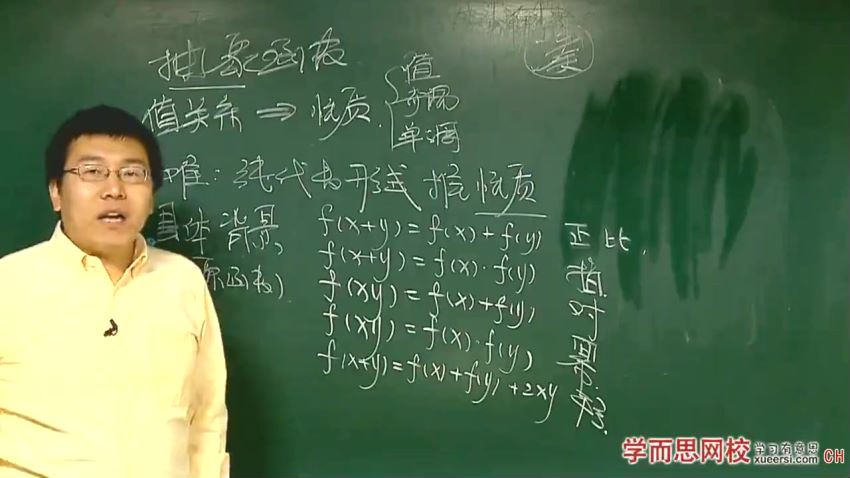 抽象函数
值关系 ⇒ 性质
值
奇偶
单调
难:纯代数形式推性质
具体背景,
f(x+y)=f(x)+f(y) 正比.
f(x+y)=f(x)·f(y) 指.
f(xy)=f(x)+f(y) 对
f(xy)=f(x)·f(y) 幂
f(x+y)=f(x)+f(y)+2xy
学而思网校 学习有意思
xueersi.com CH